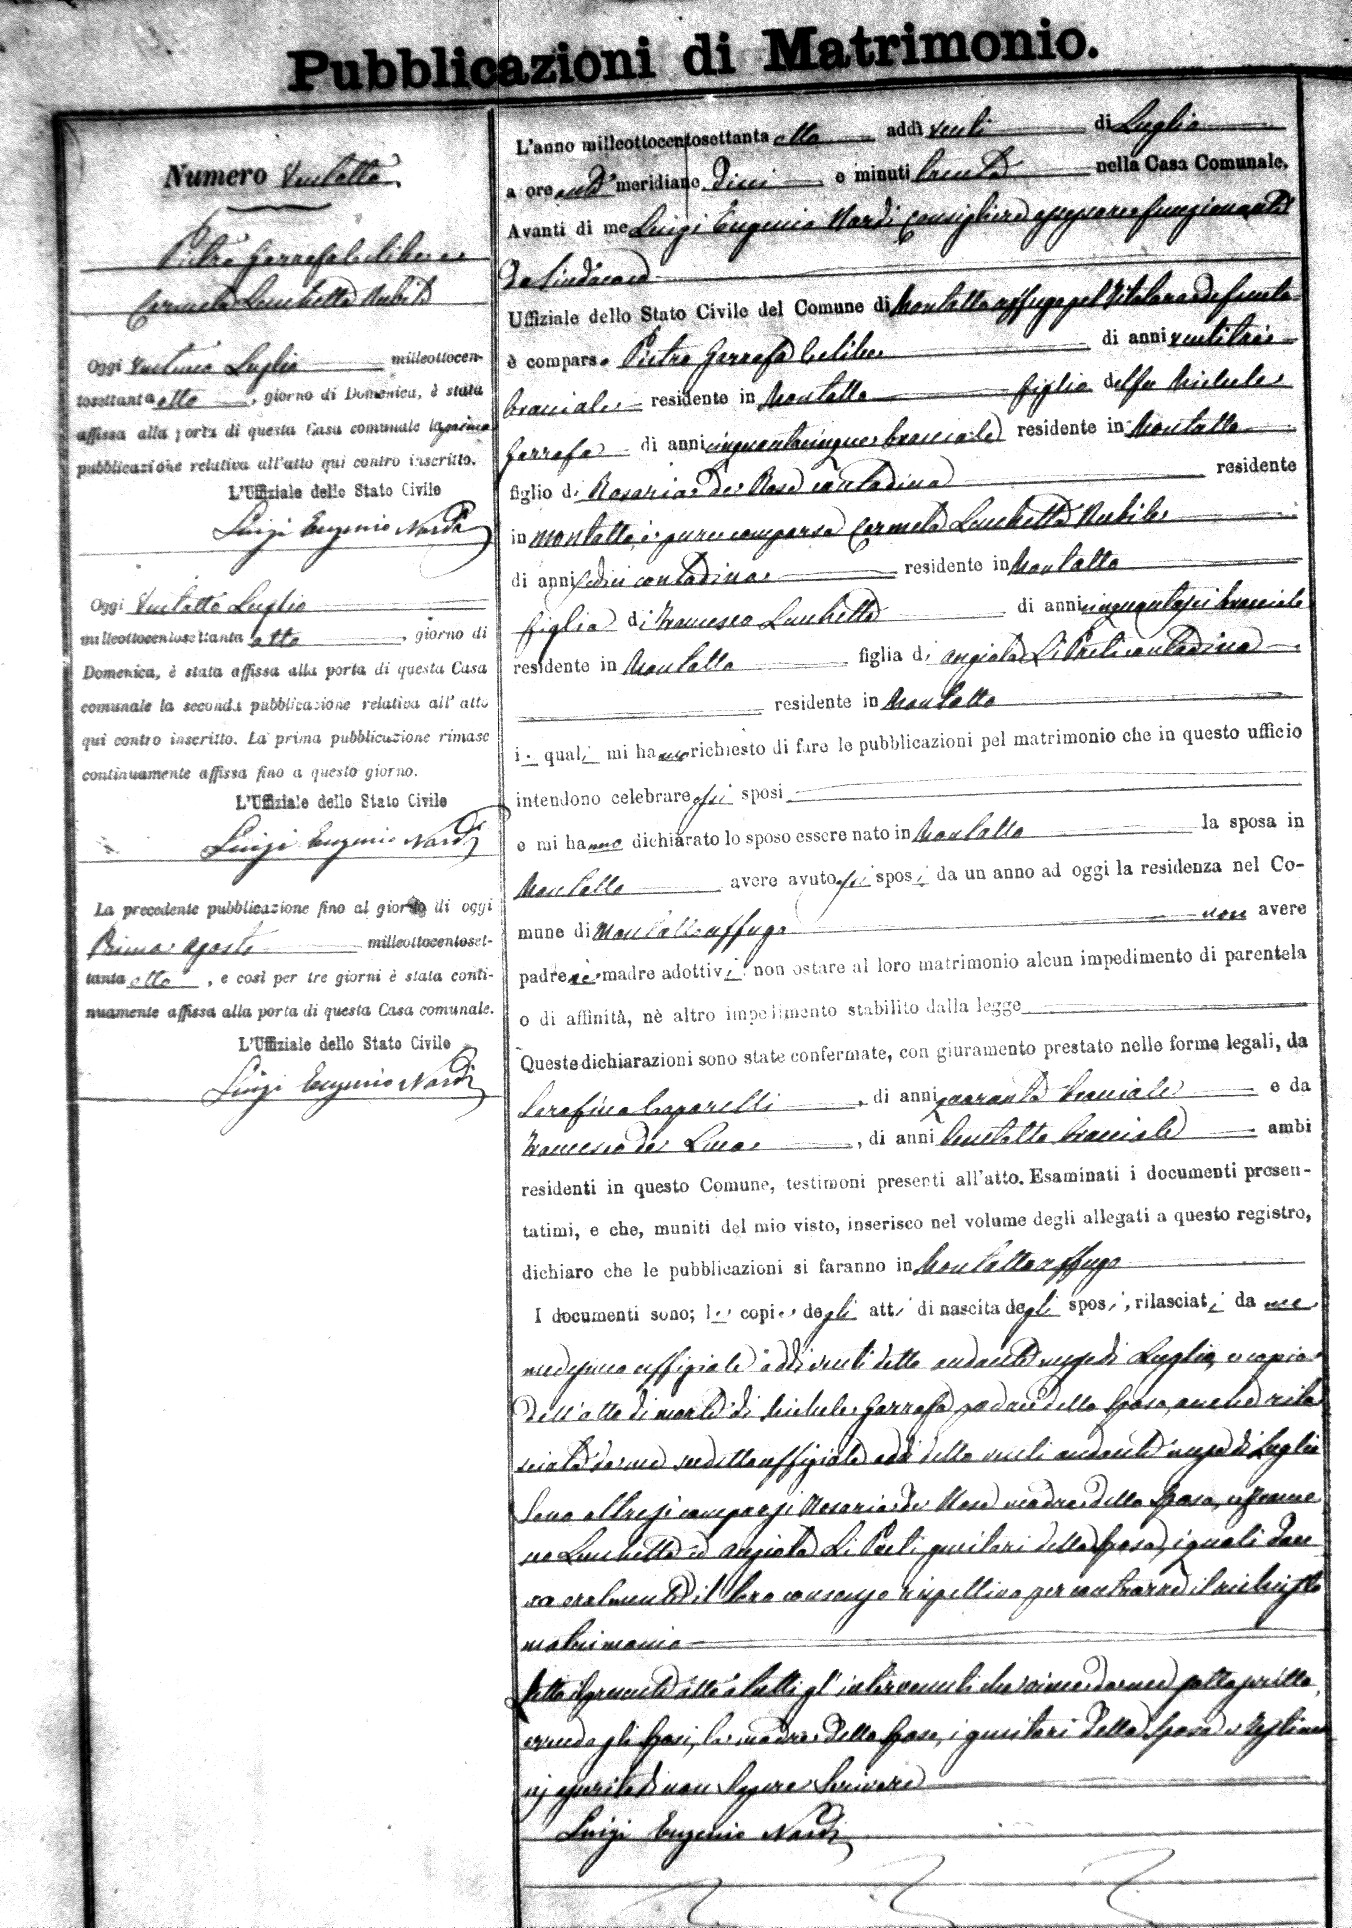 Pubblicazioni di Matrimonio.
Numero Ventotto
Pietro Garrafa celibe e
Carmela Lucchetta Nubile
Oggi Ventuno Luglio milleottocen-
tosettanta otto, giorno di Domenica, è stata
affissa alla porta di questa Casa comunale la prima
pubblicazione relativa all'atto qui contro inscritto.
L'Uffiziale dello Stato Civile
Luigi Eugenio Nardi
Oggi Ventotto Luglio
milleottocentosettanta otto, giorno di
Domenica, è stata affissa alla porta di questa Casa
comunale la seconda pubblicazione relativa all' atto
qui contro inscritto. La prima pubblicazione rimase
continuamente affissa fino a questo giorno.
L'Uffiziale dello Stato Civile
Luigi Eugenio Nardi
La precedente pubblicazione fino al giorno di oggi
Primo Agosto milleottocentoset-
tanta otto, e così per tre giorni è stata conti-
nuamente affissa alla porta di questa Casa comunale.
L'Uffiziale dello Stato Civile
Luigi Eugenio Nardi
L'anno milleottocentosettanta otto addì venti di Luglio
a ore anti meridiane dieci e minuti trenta nella Casa Comunale.
Avanti di me Luigi Eugenio Nardi Consigliere funzionante
da Sindaco
Uffiziale dello Stato Civile del Comune di Montalto uffugo pel titolare defunto
è comparso Pietro Garrafa Celibe di anni ventitrè
bracciale residente in Montalto figlio del fu Michele
Garrafa di anni cinquantacinque bracciale residente in Montalto
figlio di Rosaria de Rose contadina residente
in Montalto, è pure comparsa Carmela Lucchetta Nubile
di anni sedici contadina residente in Montalto
figlia di Francesco Lucchetta di anni cinquantasei bracciale
residente in Montalto figlia di Angiola Li Preti contadina
residente in Montalto
i quali mi hanno richiesto di fare le pubblicazioni pel matrimonio che in questo ufficio
intendono celebrare essi sposi
e mi hanno dichiarato lo sposo essere nato in Montalto la sposa in
Montalto avere avuto essi sposi da un anno ad oggi la residenza nel Co-
mune di Montalto uffugo non avere
padre nè madre adottivi; non ostare al loro matrimonio alcun impedimento di parentela
o di affinità, nè altro impedimento stabilito dalla legge
Queste dichiarazioni sono state confermate, con giuramento prestato nelle forme legali, da
Serafino Caparelli, di anni quaranta bracciale e da
Francesco de Luca, di anni ventotto bracciale ambi
residenti in questo Comune, testimoni presenti all'atto. Esaminati i documenti presen-
tatimi, e che, muniti del mio visto, inserisco nel volume degli allegati a questo registro,
dichiaro che le pubblicazioni si faranno in Montalto uffugo
I documenti sono; le copie degli atti di nascita degli sposi, rilasciati da me
medesimo uffiziale addì venti detto andante mese di Luglio, e copia
dell'atto di morte di Michele Garrafa padre dello sposo, anche rila
sciata da me sudetto uffiziale addì detto venti andante mese di Luglio
Sono altresì comparsi Rosaria de Rose madre dello Sposo, e France
sco Lucchetta ed Angiola Li Preti genitori della Sposa, i quali dan
no oralmente il loro consenso rispettivo per contrarre il richiesto
matrimonio
Letto il presente atto a tutti gl'intervenuti da me sottoscritto,
avendo gli Sposi, la madre dello Sposo, i genitori della Sposa e testimo
nj asserito di non Sapere Scrivere
Luigi Eugenio Nardi